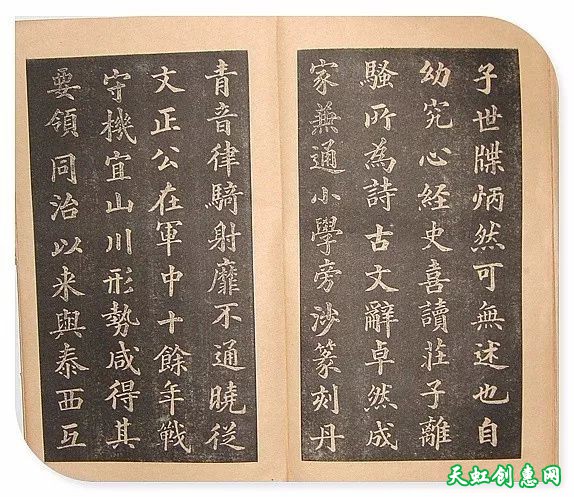 子世牒炳然可無述也自
幼究心經史喜讀莊子離
騷所為詩古文辭卓然成
家兼通小學旁涉篆刻丹
青音律騎射靡不通曉從
文正公在軍中十餘年戰
守機宜山川形勢咸得其
要領同治以来與泰西互
天虹创惠网